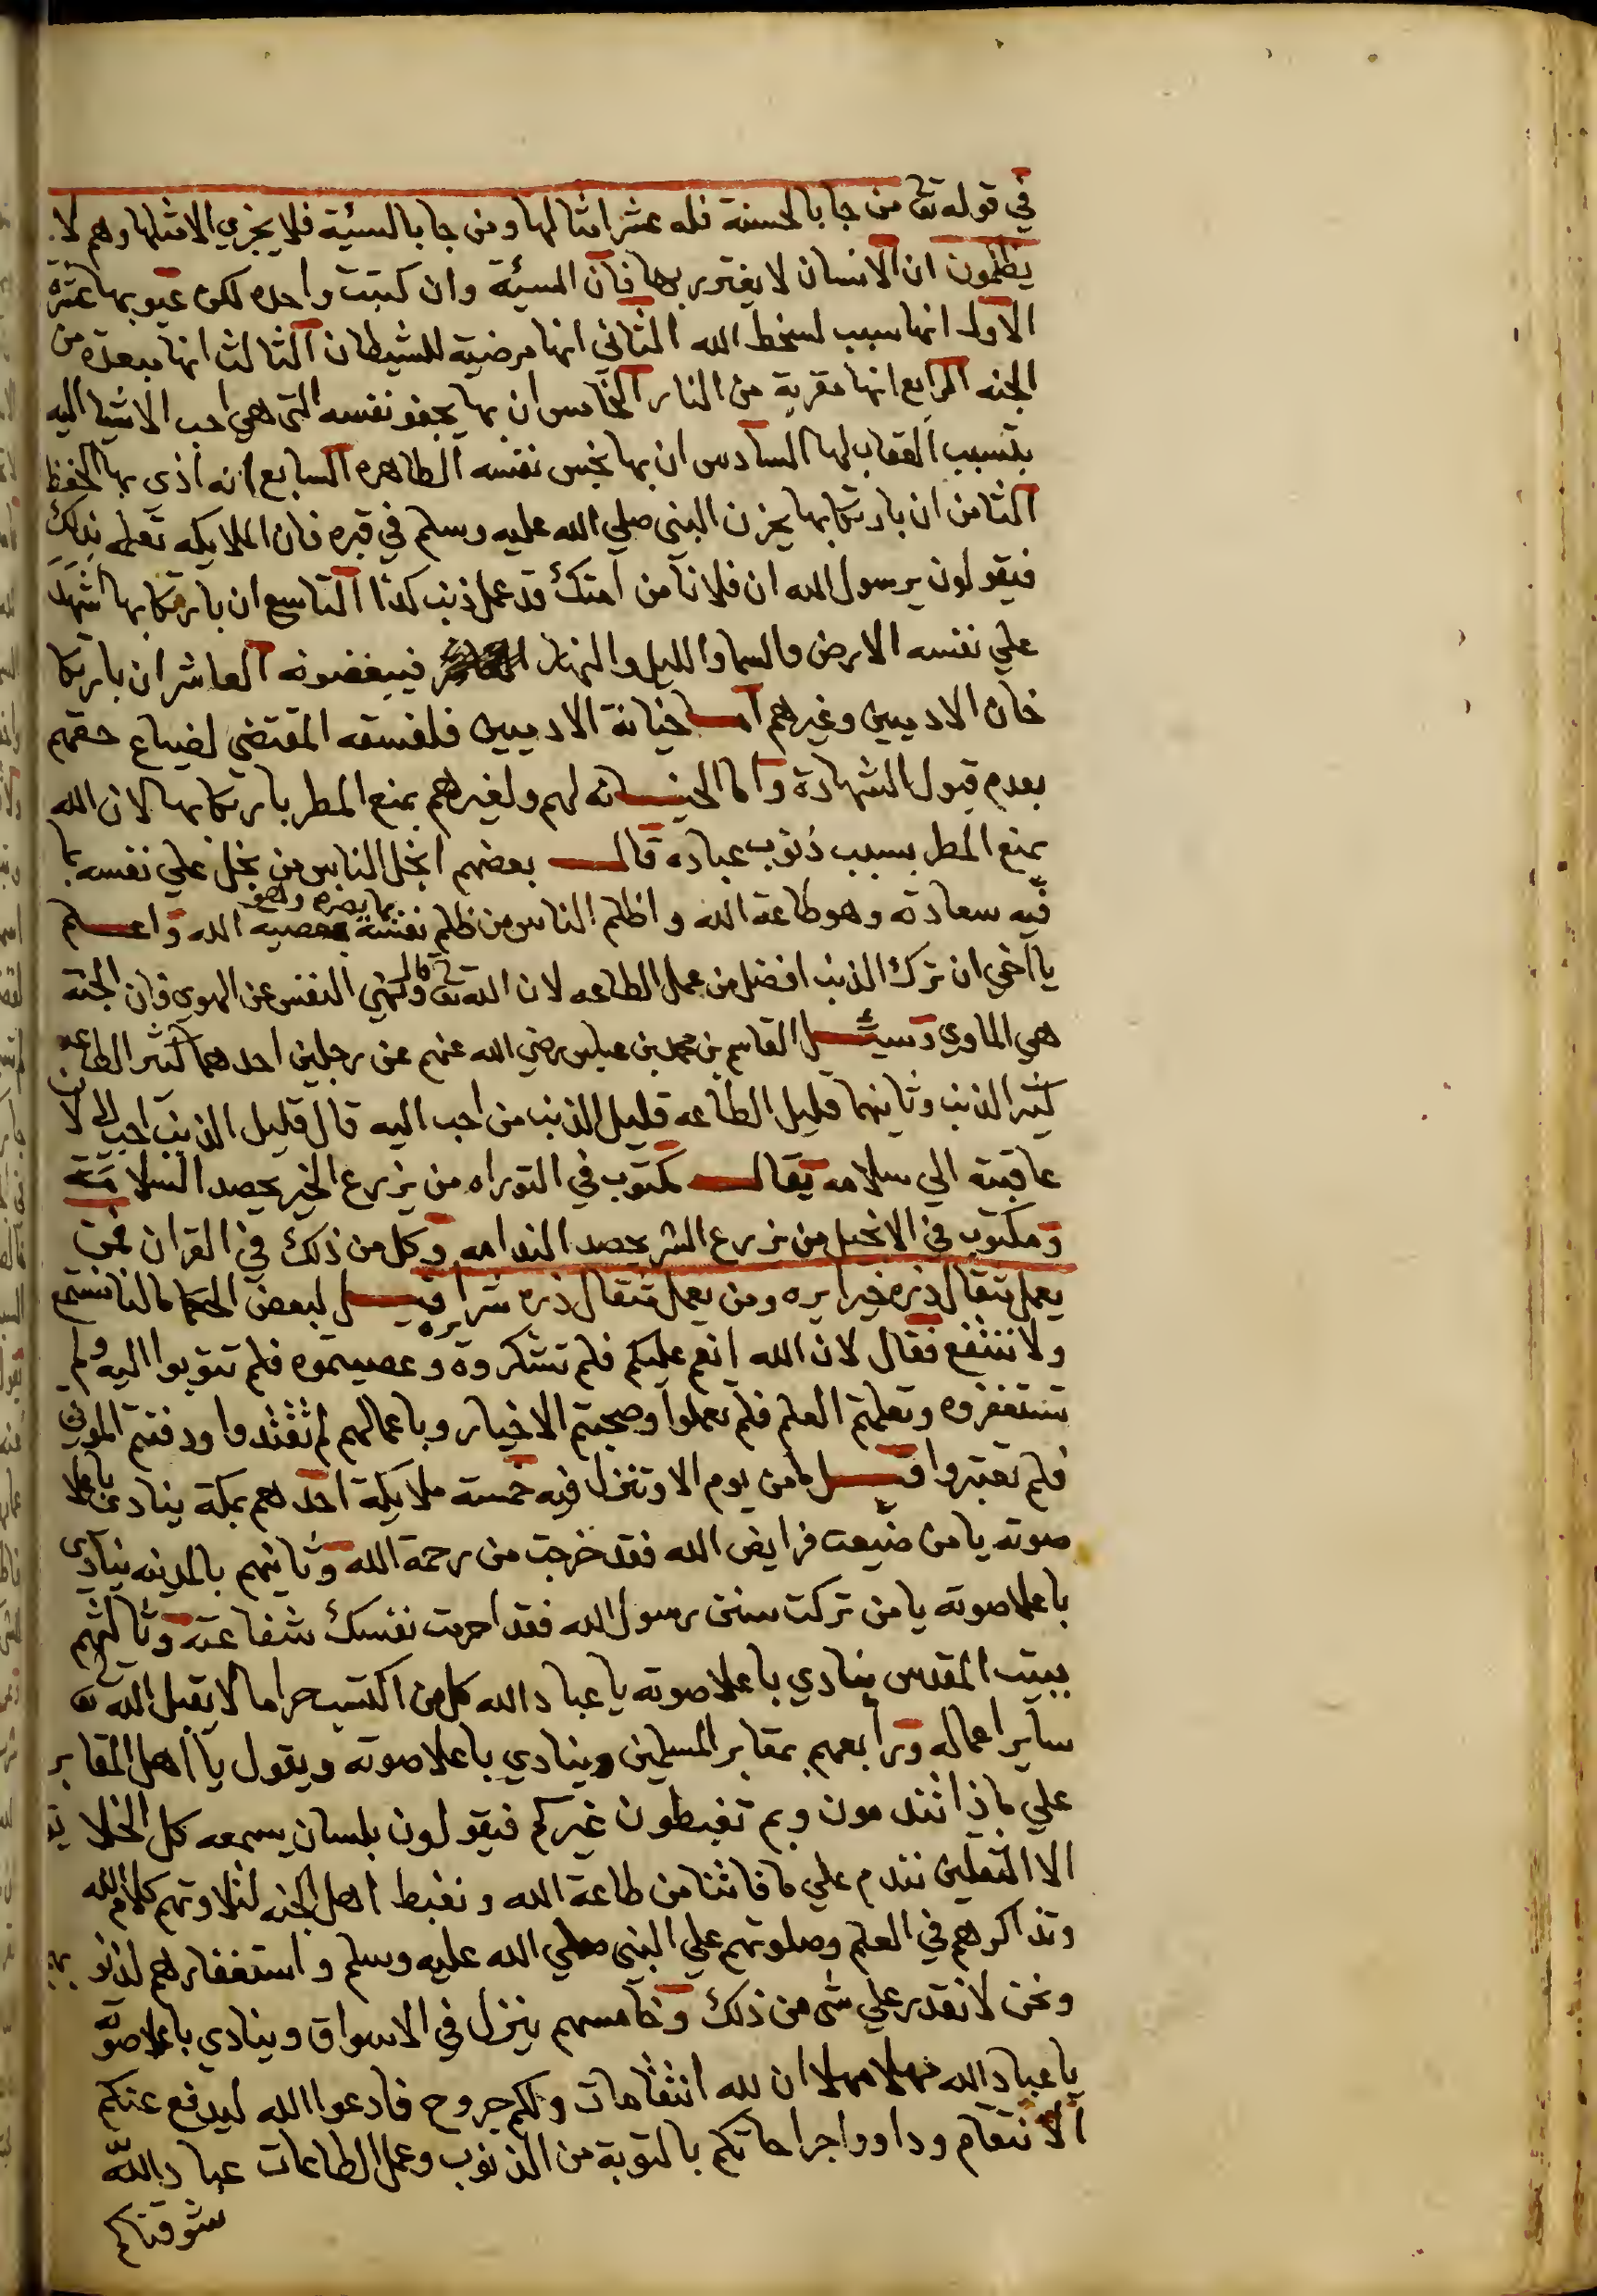 في قوله تعا من جا بالحسنة فله عشر امثالها ومن جا بالسيئة فلا يجزي الا مثلها وهم لا
يظلمون ان الانسان لا يغتر بها فان السيئة وان كتبت واحده لكن عيوبها عشرة
الاول انها سبب لسخط الله الثاني انها مرضية للشيطان الثالث انها مبعدة من
الجنه الرابع انها مقربة من النار الخامس ان بها يجفو نفسه التي هي احب الاشيا اليه
بتسبب العقاب لها السادس ان بها نجس نفسه الطاهره السابع انه اذي بها الحفظ
الثامن ان بارتكابها يحزن النبي صلي الله عليه وسلم في قبره فان الملايكه تعلمه بذلك
فيقولون يرسول الله ان فلانا من امتك قد عمل ذنب كذا التاسع ان بارتكابها اشهد
علي نفسه الارض والسما والليل والنهار فيبغضونه العاشر ان بارتكا
خان الادميين وغيرهم اما خيانة الادميين فلفسقه المقتضي لضياع حقهم
بعدم قبول الشهادة واما الخيانه لهم ولغيرهم بمنع المطر بارتكابها لان الله
يمنع المطر بسبب ذنوب عباده قال بعضهم ابخل الناس من بخل علي نفسه بما
فيه سعادته وهو طاعة الله واظلم الناس من ظلم نفسه بما يضره وهو معصية الله واعلم
يا اخي ان ترك الذنب افضل من عمل الطاعه لان الله تعا قال ونهي النفس عن الهوي فان الجنة
هي الماوي وسئل القاسم بن محمد بن عباس رضي الله عنهم عن رجلين احدهما كثير الطاعه
كثير الذنب وثانيهما قليل الطاعه قليل الذنب من احب اليه قال قليل الذنب احب الي لان
عاقبته الي سلامه يقال مكتوب في التوراه من يزرع الخير يحصد السلامة
ومكتوب في الانجيل من زرع الشر يحصد الندامه وكل من ذلك في القران فمن
يعمل مثقال ذره خيرا يره ومن يعمل مثقال ذره شرا يره قيل لبعض الحكما مالنا نسمع
ولا ننتفع فقال لان الله انعم عليكم فلم تشكروه وعصيتموه فلم تتوبوا اليه ولم
تستغفروه وتعلمتم العلم فلم تعملوا وصحبتم الاخيار وباعمالهم لم تقتدوا ودفنتم الموتي
فلم تعتبروا قيل ما من يوم الا وتنزل فيه خمسة ملايكة احدهم بمكة ينادي باعلا
صوته يا من ضيعت فرايض الله فقد خرجت من رحمة الله وثانيهم بالمدينه ينادي
باعلا صوته يا من تركت سنن رسول الله فقد احرمت نفسك شفاعته وثالثهم
ببيت المقدس ينادي باعلا صوته يا عباد الله كل من اكتسب حراما لا يقبل الله تعا
ساير اعماله ورابعهم بمقابر المسلمين وينادي باعلا صوته ويقول يا اهل المقابر
علي ماذا تندمون وبم تغبطون غيركم فيقولون بلسان يسمعه كل الخلايق
الا الثقلين نندم علي ما فاتنا من طاعة الله ونغبط اهل الجنه لتلاوتهم كلام الله
وتذاكرهم في العلم وصلوتهم علي النبي صلي الله عليه وسلم واستغفارهم لذنوبهم
ونحن لا نقدر علي شي من ذلك وخامسهم ينزل في الاسواق وينادي باعلا صوته
يا عباد الله مهلا مهلا ان لله انتقامات ولكم جروح فادعوا الله ليدفع عنكم
الانتقام وداووا جراحاتكم بالتوبة من الذنوب وعمل الطاعات عباد الله
شوقناكم